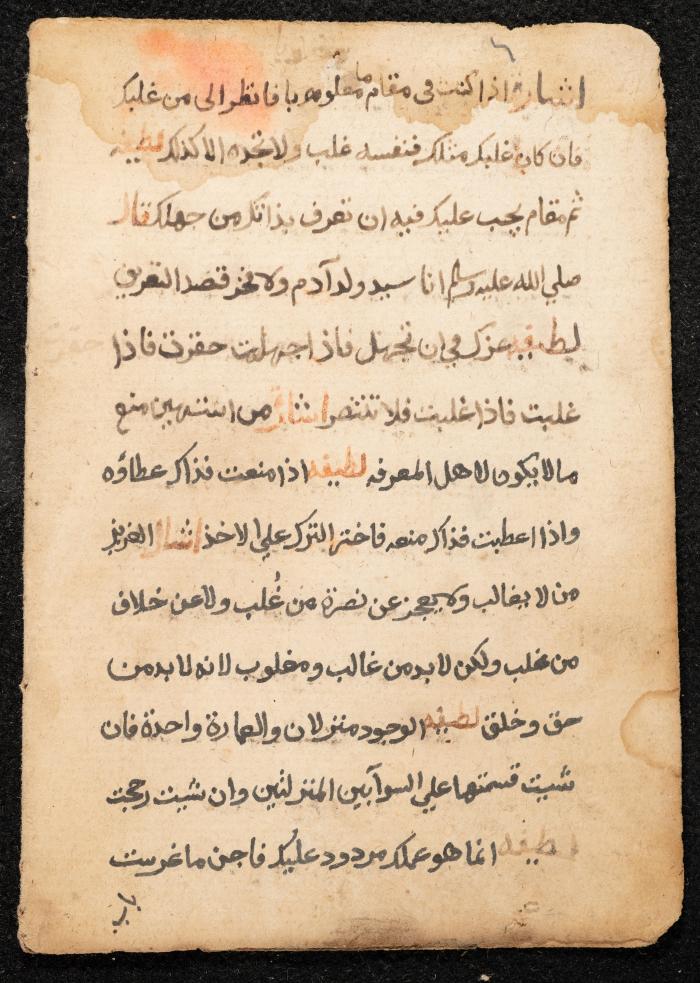 اشارة اذا كنت في مقام ما معلوم يا فانظر الى من غلبك
فان كان غلبك مثلك فنفسه غلب ولا تجده الا كذلك لطيفه
ثم مقام يجب عليك فيه ان تعرف بذاتك من جهلك قال
صلي الله عليه وسلم انا سيد ولد آدم ولا فخر قصد التعريف
لطيفه عزك في ان تجهل فاذا جهلت حقرت فاذا
غلبت فاذا غلبت فلا تنتصر اشارة من استهين منع
ما لا يكون لاهل المعرفه لطيفه اذا منعت فذاك عطاؤه
واذا اعطيت فذاك منعه فاختر الترك علي الاخذ اشارة العزيز
من لا يغالب ولا يعجز عن نصرة من غُلب ولا عن خلاف
من غلب ولكن لا بد من غالب ومغلوب لانه لا بد من
حق وخلق لطيفه الوجود منزلان والعمارة واحدة فان
شيت قسمتها علي السوآ بين المنزلتين وان شيت رجحت
لطيفه انما هو عملك مردود عليك فاجن ما غرست